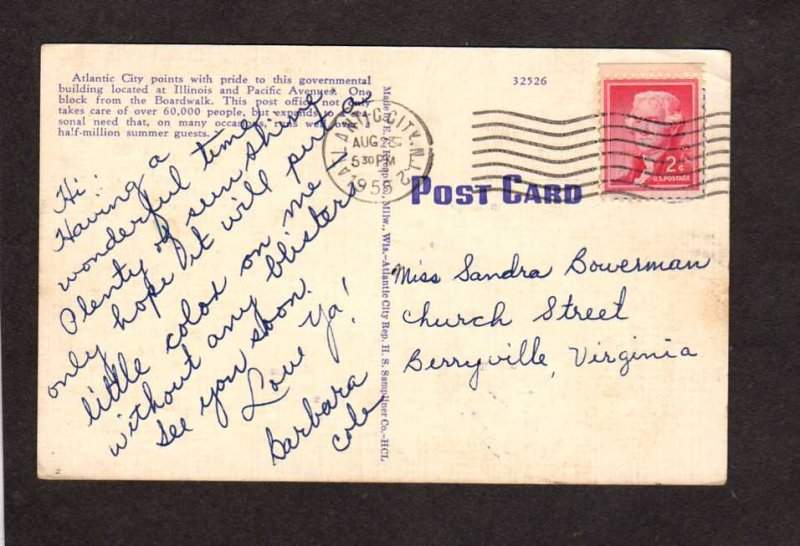 Atlantic City points with pride to this governmental
building located at Illinois and Pacific Avenues. One
block from the Boardwalk. This post office not only
takes care of over 60,000 people, but expands to a sea-
sonal need that, on many occasions, runs well over
half-million summer guests.
Hi:
Having a
wonderful time.
Plenty of sunshine
only hope it will put a
little color on me
without any blisters
See you soon.
Love Ya!
Barbara
Cole
32526
ATLANTIC CITY, N.J.
AUG 28
5 30 PM
1955
2
2¢
U.S. POSTAGE
POST CARD
Miss Sandra Bowerman
Church Street
Berryville, Virginia
Milw., Wis.—Atlantic City Rep. H. S. Sampliner Co.—HCL